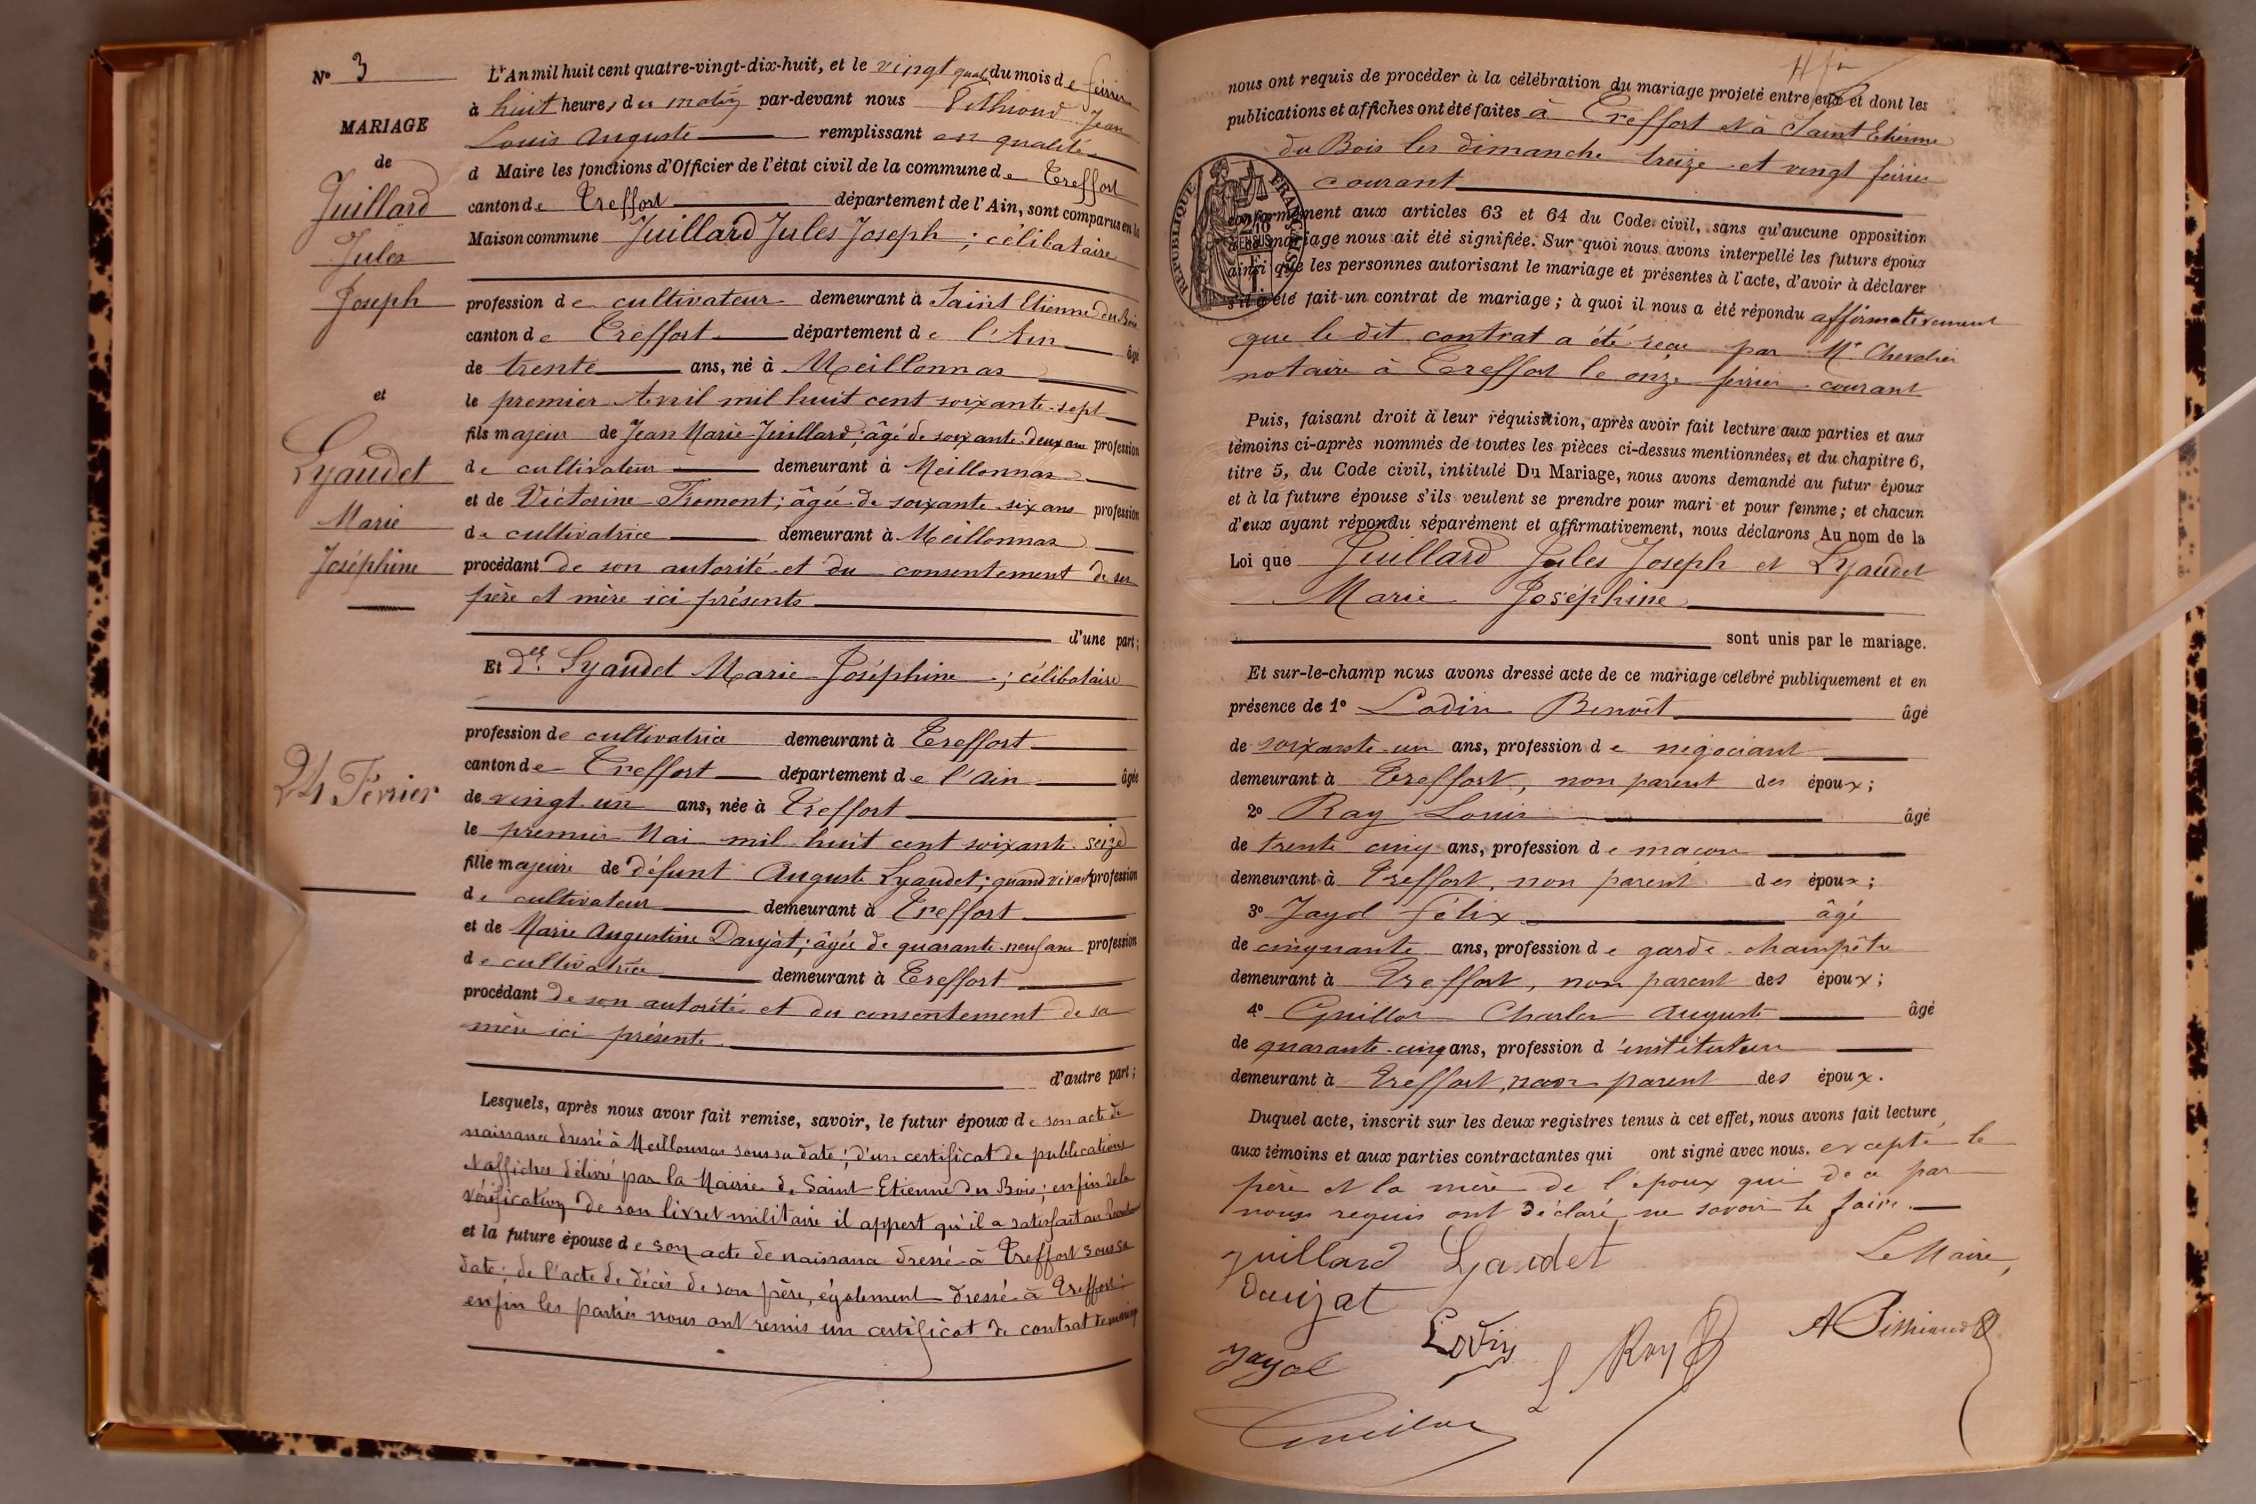 N° 3
MARIAGE
de
Juillard
Jules
Joseph
et
Lyaudet
Marie
Joséphine
24 Février
L'An mil huit cent quatre-vingt-dix-huit, et le vingt quatre du mois de février
à huit heures du matin par-devant nous Pithioud Jean
Louis Auguste remplissant en qualité
d Maire les fonctions d'Officier de l'état civil de la commune de Treffort
canton de Treffort département de l'Ain, sont comparus en la
Maison commune Juillard Jules Joseph ; célibataire
profession de cultivateur demeurant à Saint Etienne du Bois
canton de Treffort département de l'Ain âgé
de trente ans, né à Meillonnas
le premier Avril mil huit cent soixante-sept
fils majeur de Jean Marie Juillard ; âgé de soixante-deux ans profession
de cultivateur demeurant à Meillonnas
et de Victorine Froment ; âgée de soixante six ans profession
de cultivatrice demeurant à Meillonnas
procédant de son autorité et du consentement de ses
père et mère ici présents
d'une part ;
Et delle Lyaudet Marie Joséphine ; célibataire
profession de cultivatrice demeurant à Treffort
canton de Treffort département de l'Ain âgée
de vingt-un ans, née à Treffort
le premier Mai mil huit cent soixante seize
fille majeure de défunt Auguste Lyaudet ; quand vivait profession
de cultivateur demeurant à Treffort
et de Marie Augustine Daujat ; âgée de quarante-neuf ans profession
de cultivatrice demeurant à Treffort
procédant de son autorité et du consentement de sa
mère ici présente
d'autre part ;
Lesquels, après nous avoir fait remise, savoir, le futur époux de son acte de
naissance dressé à Meillonnas sous sa date ; d'un certificat de publications
et affiches délivré par la Mairie de Saint-Etienne du Bois ; enfin de la
vérification de son livret militaire il appert qu'il a satisfait au
et la future épouse de son acte de naissance dressé à Treffort sous sa
date ; de l'acte de décès de son père, également dressé à Treffort ;
enfin les parties nous ont remis un certificat de contrat de mariage
nous ont requis de procéder à la célébration du mariage projeté entre eux et dont les
publications et affiches ont été faites à Treffort et à Saint Etienne
du Bois les dimanche treize et vingt février
courant
RÉPUBLIQUE FRANÇAISE
conformément aux articles 63 et 64 du Code civil, sans qu'aucune opposition
à ce mariage nous ait été signifiée. Sur quoi nous avons interpellé les futurs époux
ainsi que les personnes autorisant le mariage et présentes à l'acte, d'avoir à déclarer
s'il a été fait un contrat de mariage ; à quoi il nous a été répondu affirmativement
que le dit contrat a été reçu par Me Chevalier
notaire à Treffort le onze février courant
Puis, faisant droit à leur réquisition, après avoir fait lecture aux parties et aux
témoins ci-après nommés de toutes les pièces ci-dessus mentionnées, et du chapitre 6,
titre 5, du Code civil, intitulé Du Mariage, nous avons demandé au futur époux
et à la future épouse s'ils veulent se prendre pour mari et pour femme ; et chacun
d'eux ayant répondu séparément et affirmativement, nous déclarons Au nom de la
Loi que Juillard Jules Joseph et Lyaudet
Marie Joséphine
sont unis par le mariage.
Et sur-le-champ nous avons dressé acte de ce mariage célébré publiquement et en
présence de 1° Lodin Benoît âgé
de soixante-un ans, profession de négociant
demeurant à Treffort, non parent des époux ;
2° Ray Louis âgé
de trente cinq ans, profession de maçon
demeurant à Treffort, non parent des époux ;
3° Jayol Félix âgé
de cinquante ans, profession de garde-champêtre
demeurant à Treffort, non parent des époux ;
4° Guillot Charles Auguste âgé
de quarante-cinq ans, profession d'instituteur
demeurant à Treffort, non parent des époux.
Duquel acte, inscrit sur les deux registres tenus à cet effet, nous avons fait lecture
aux témoins et aux parties contractantes qui ont signé avec nous. excepté le
père et la mère de l'époux qui de ce par
nous requis ont déclaré ne savoir le faire.
Juillard Lyaudet Le Maire,
Daujat
Lodin L Ray A Pithioud
Jayol
Guillot